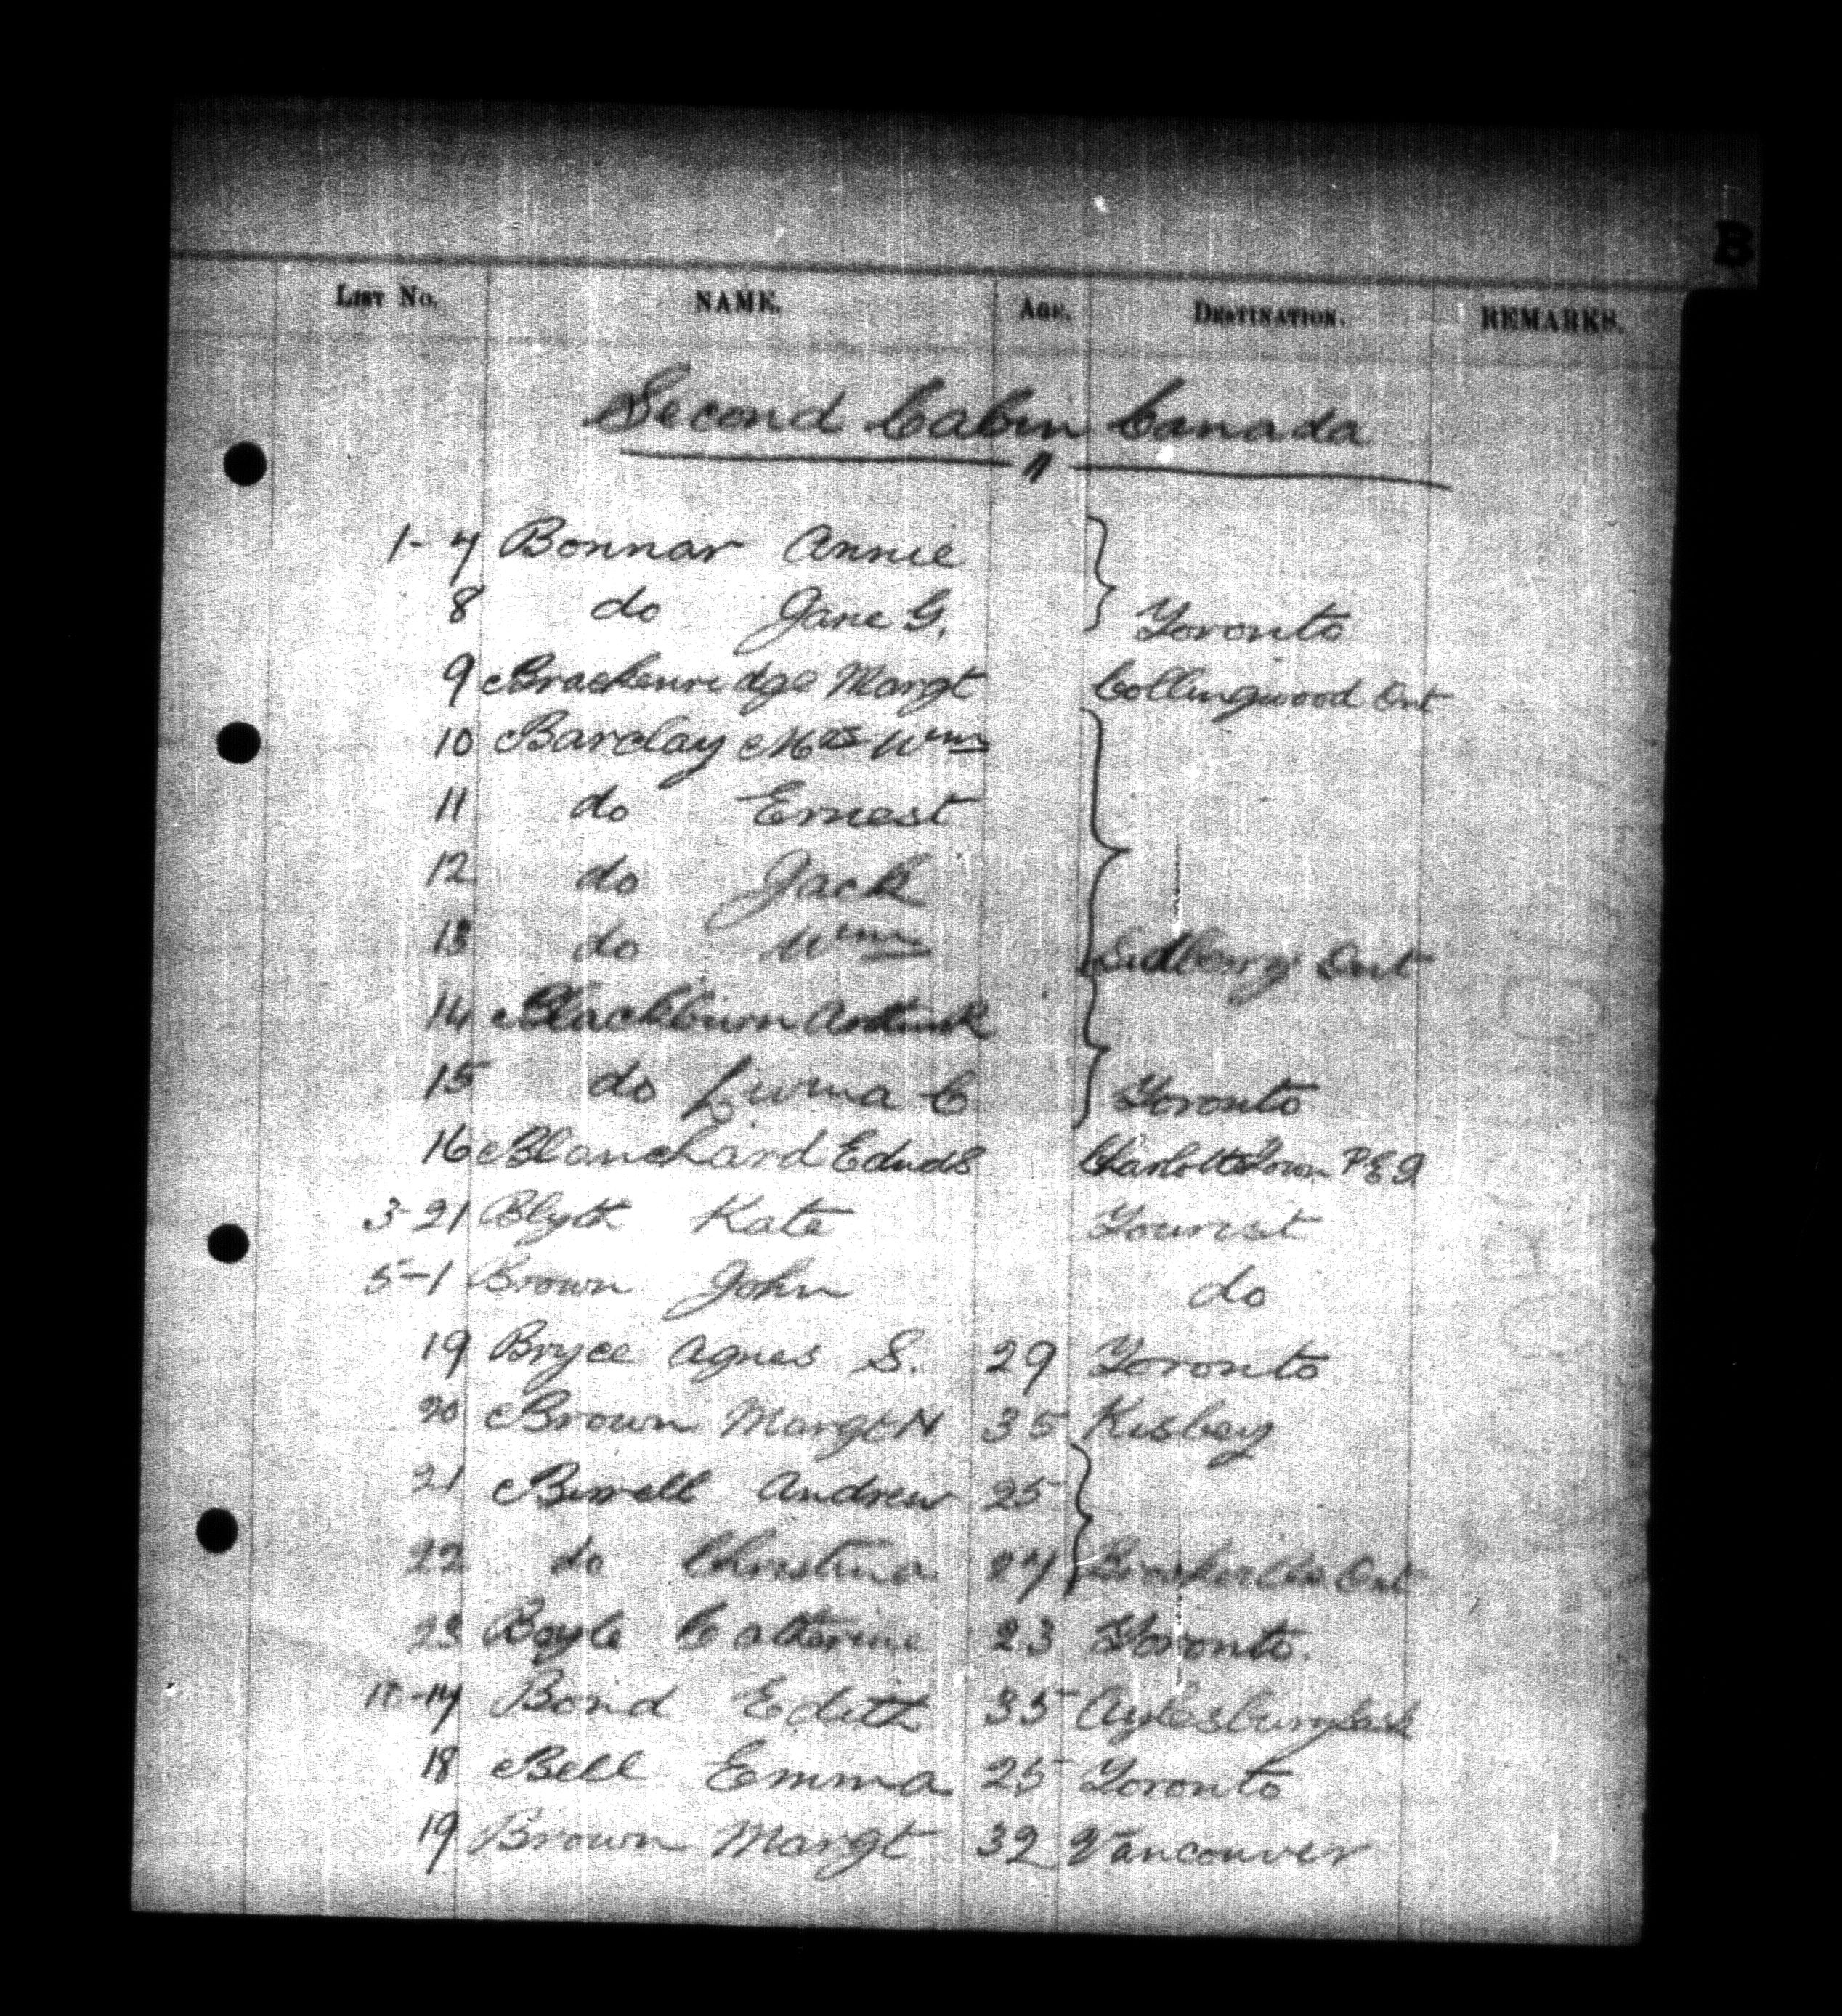 B
LIST No. NAME. AGE. DESTINATION. REMARKS.
Second Cabin Canada
"
1-7 Bonnar Annie
8 do Jane G. Toronto
9 Brackenridge Margt Collingwood Ont
10 Barclay Mrs Wm
11 do Ernest
12 do Jack
13 do Wm Sudbury Ont
14 Blackburn
15 do C Toronto
16 Blanchard Charlottetown P E I
3-21 Blyth Kate Tourist
5-1 Brown John do
19 Bryce Agnes S. 29 Toronto
20 Brown Margt N 35 Kisbey
21 Birrell Andrew 25
22 do Christina 27 Ont
23 Boyle Catherine 23 Toronto.
Bond Edith 35 Aylesbury Sask
18 Bell Emma 25 Toronto
19 Brown Margt 32 Vancouver